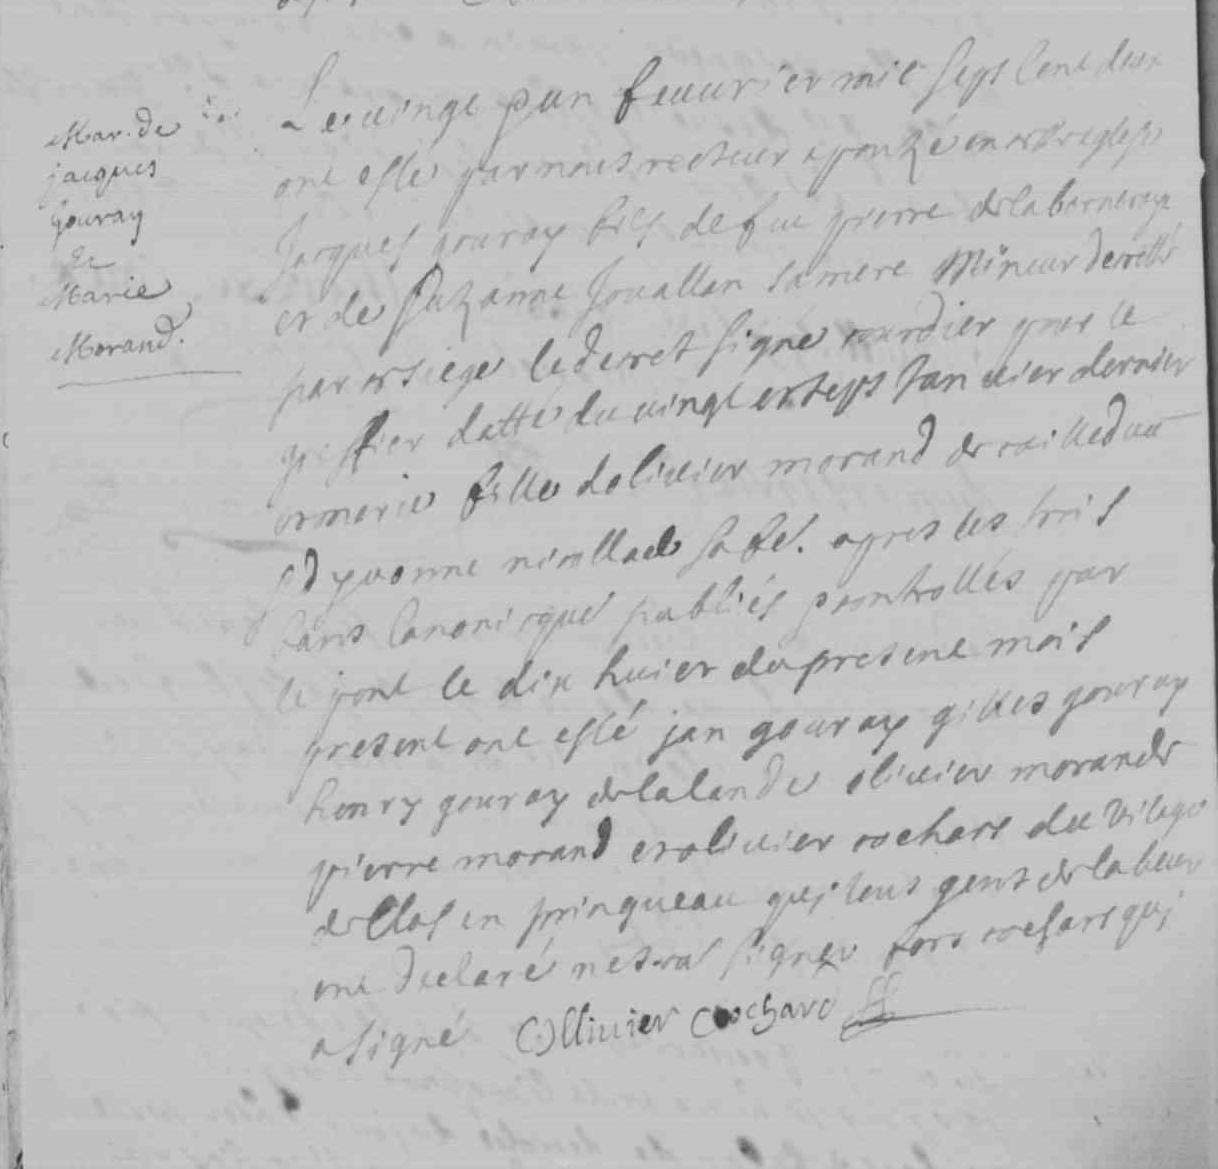 Mar. de
jacques
gouray
&
Marie
Morand.
Le vingt un feuurier mil sept cent deux
ont esté par nous recteur epouzé en nostre eglise
Jacques gouray fils de feu pierre de la barneraye
et de Suzanne Jouallan sa mere Mineur decretté
par siege le decret signé pour le
greffier datté du vingt et sept Januier dernier
et marie fille doliuier morand de
et yuonne sa fe. apres les trois
bans canonique publiés controllés par
le jont le dix huict du present mois
present ont esté jan gouray gilles gouray
henry gouray de la lande oliuier morand &
pierre morand et oliuier cochart du vilage
de Clos en prinqueau quj tous gens de labeur
ont declaré ne signer fors cochart quj
a signé Olliuier cochard